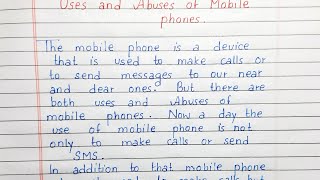 Uses and Abuses of Mobile
phones.
The mobile phone is a device
that is used to make calls or
to send messages to our near
and dear ones. But there are
both uses and Abuses of
mobile phones. Now a day the
use of mobile phone is not
only to make calls or send
SMS.
In addition to that mobile phone